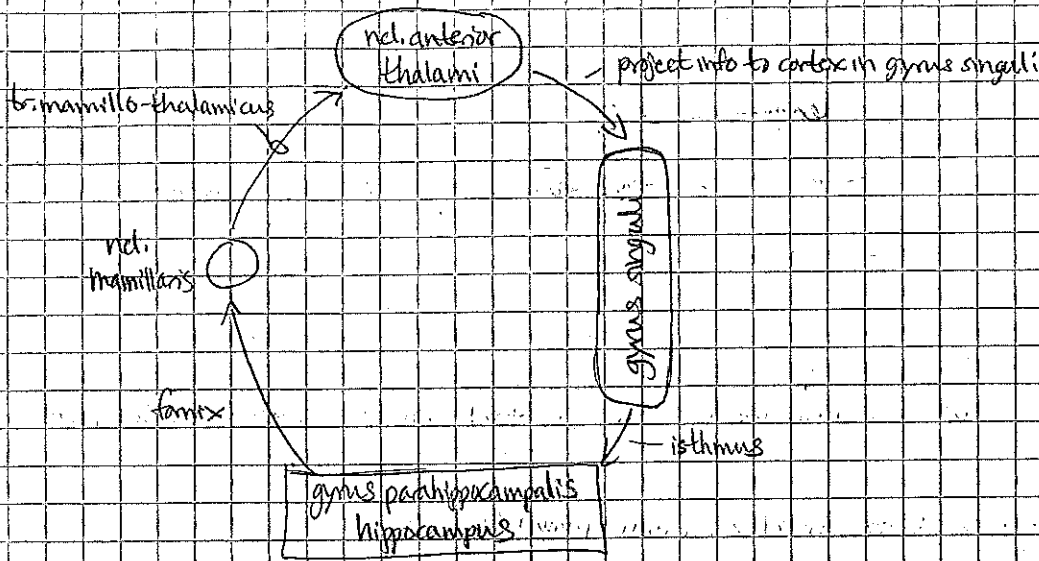 ncl. anterior
thalami
project info to cortex in gyrus singuli
tr. mamillo-thalamicus
gyrus singuli
ncl.
mamillaris
fornix
isthmus
gyrus parahippocampalis
hippocampus